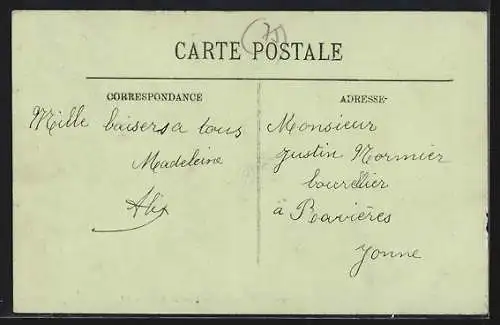 CARTE POSTALE
CORRESPONDANCE
Mille baisers a tous
Madeleine
ADRESSE
Monsieur
Justin Normier
bourrelier
à Ravières
Yonne